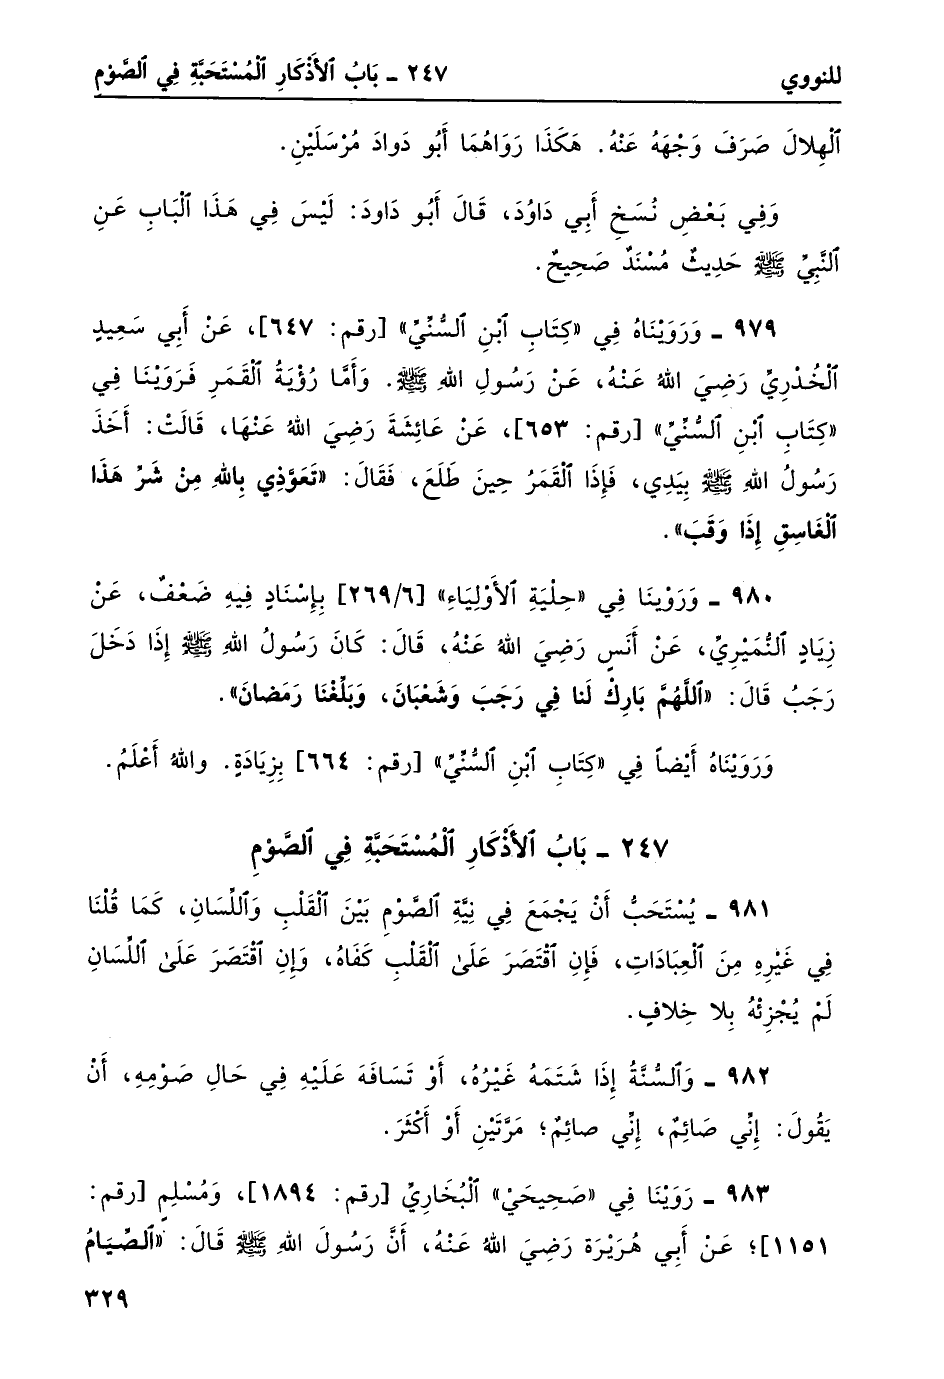 للنووي ٢٤٧ ـ بَابُ ٱلأَذْكَارِ ٱلْمُسْتَحَبَّةِ فِي ٱلصَّوْمِ
ٱلْهِلالَ صَرَفَ وَجْهَهُ عَنْهُ. هَكَذَا رَوَاهُمَا أَبُو دوادَ مُرْسَلَيْنِ.
وَفِي بَعْضِ نُسَخِ أَبِي دَاوُدَ، قَالَ أَبُو دَاودَ: لَيْسَ فِي هَذَا ٱلْبَابِ عَنِ
ٱلنَّبِيِّ ﷺ حَدِيثٌ مُسْنَدٌ صَحِيحٌ.
٩٧٩ ـ وَرَوَيْنَاهُ فِي «كِتَابِ ٱبْنِ ٱلسُّنِّيِّ» [رقم: ٦٤٧]، عَنْ أَبِي سَعِيدٍ
ٱلْخُدْرِيِّ رَضِيَ اللهُ عَنْهُ، عَنْ رَسُولِ اللهِ ﷺ. وَأَمَّا رُؤْيَةُ ٱلْقَمَرِ فَرَوَيْنَا فِي
«كِتَابِ ٱبْنِ ٱلسُّنِّيِّ» [رقم: ٦٥٣]، عَنْ عَائِشَةَ رَضِيَ اللهُ عَنْهَا، قَالَتْ: أَخَذَ
رَسُولُ اللهِ ﷺ بِيَدِي، فَإِذَا ٱلْقَمَرُ حِينَ طَلَعَ، فَقَالَ: «تَعَوَّذِي بِاللهِ مِنْ شَرِّ هَذَا
ٱلْغَاسِقِ إِذَا وَقَبَ».
٩٨٠ ـ وَرَوَيْنَا فِي «حِلْيَةِ ٱلأَوْلِيَاءِ» [٢٦٩/٦] بِإِسْنَادٍ فِيهِ ضَعْفٌ، عَنْ
زِيَادٍ ٱلنُّمَيْرِيِّ، عَنْ أَنَسٍ رَضِيَ اللهُ عَنْهُ، قَالَ: كَانَ رَسُولُ اللهِ ﷺ إِذَا دَخَلَ
رَجَبُ قَالَ: «ٱللَّهُمَّ بَارِكْ لَنا فِي رَجَبَ وَشَعْبَانَ، وَبَلِّغْنَا رَمَضانَ».
وَرَوَيْنَاهُ أَيْضاً فِي «كِتَابِ ٱبْنِ ٱلسُّنِّيِّ» [رقم: ٦٦٤] بِزِيَادَةٍ. واللهُ أَعْلَمُ.
٢٤٧ ـ بَابُ ٱلأَذْكَارِ ٱلْمُسْتَحَبَّةِ فِي ٱلصَّوْمِ
٩٨١ ـ يُسْتَحَبُّ أَنْ يَجْمَعَ فِي نِيَّةِ ٱلصَّوْمِ بَيْنَ ٱلْقَلْبِ وَٱللِّسَانِ، كَمَا قُلْنَا
فِي غَيْرِهِ مِنَ ٱلْعِبَادَاتِ، فَإِنِ ٱقْتَصَرَ عَلَىٰ ٱلْقَلْبِ كَفَاهُ، وَإِنِ ٱقْتَصَرَ عَلَىٰ ٱللِّسَانِ
لَمْ يُجْزِئْهُ بِلا خِلافٍ.
٩٨٢ ـ وَٱلسُّنَّةُ إِذَا شَتَمَهُ غَيْرُهُ، أَوْ تَسَافَهَ عَلَيْهِ فِي حَالِ صَوْمِهِ، أَنْ
يَقُولَ: إِنِّي صَائِمٌ، إِنِّي صائِمٌ؛ مَرَّتَيْنِ أَوْ أَكْثَرَ.
٩٨٣ ـ رَوَيْنَا فِي «صَحِيحَيْ» ٱلْبُخَارِيِّ [رقم: ١٨٩٤]، وَمُسْلِمٍ [رقم:
١١٥١]؛ عَنْ أَبِي هُرَيْرَةَ رَضِيَ اللهُ عَنْهُ، أَنَّ رَسُولَ اللهِ ﷺ قَالَ: «ٱلصِّيَامُ
٣٢٩